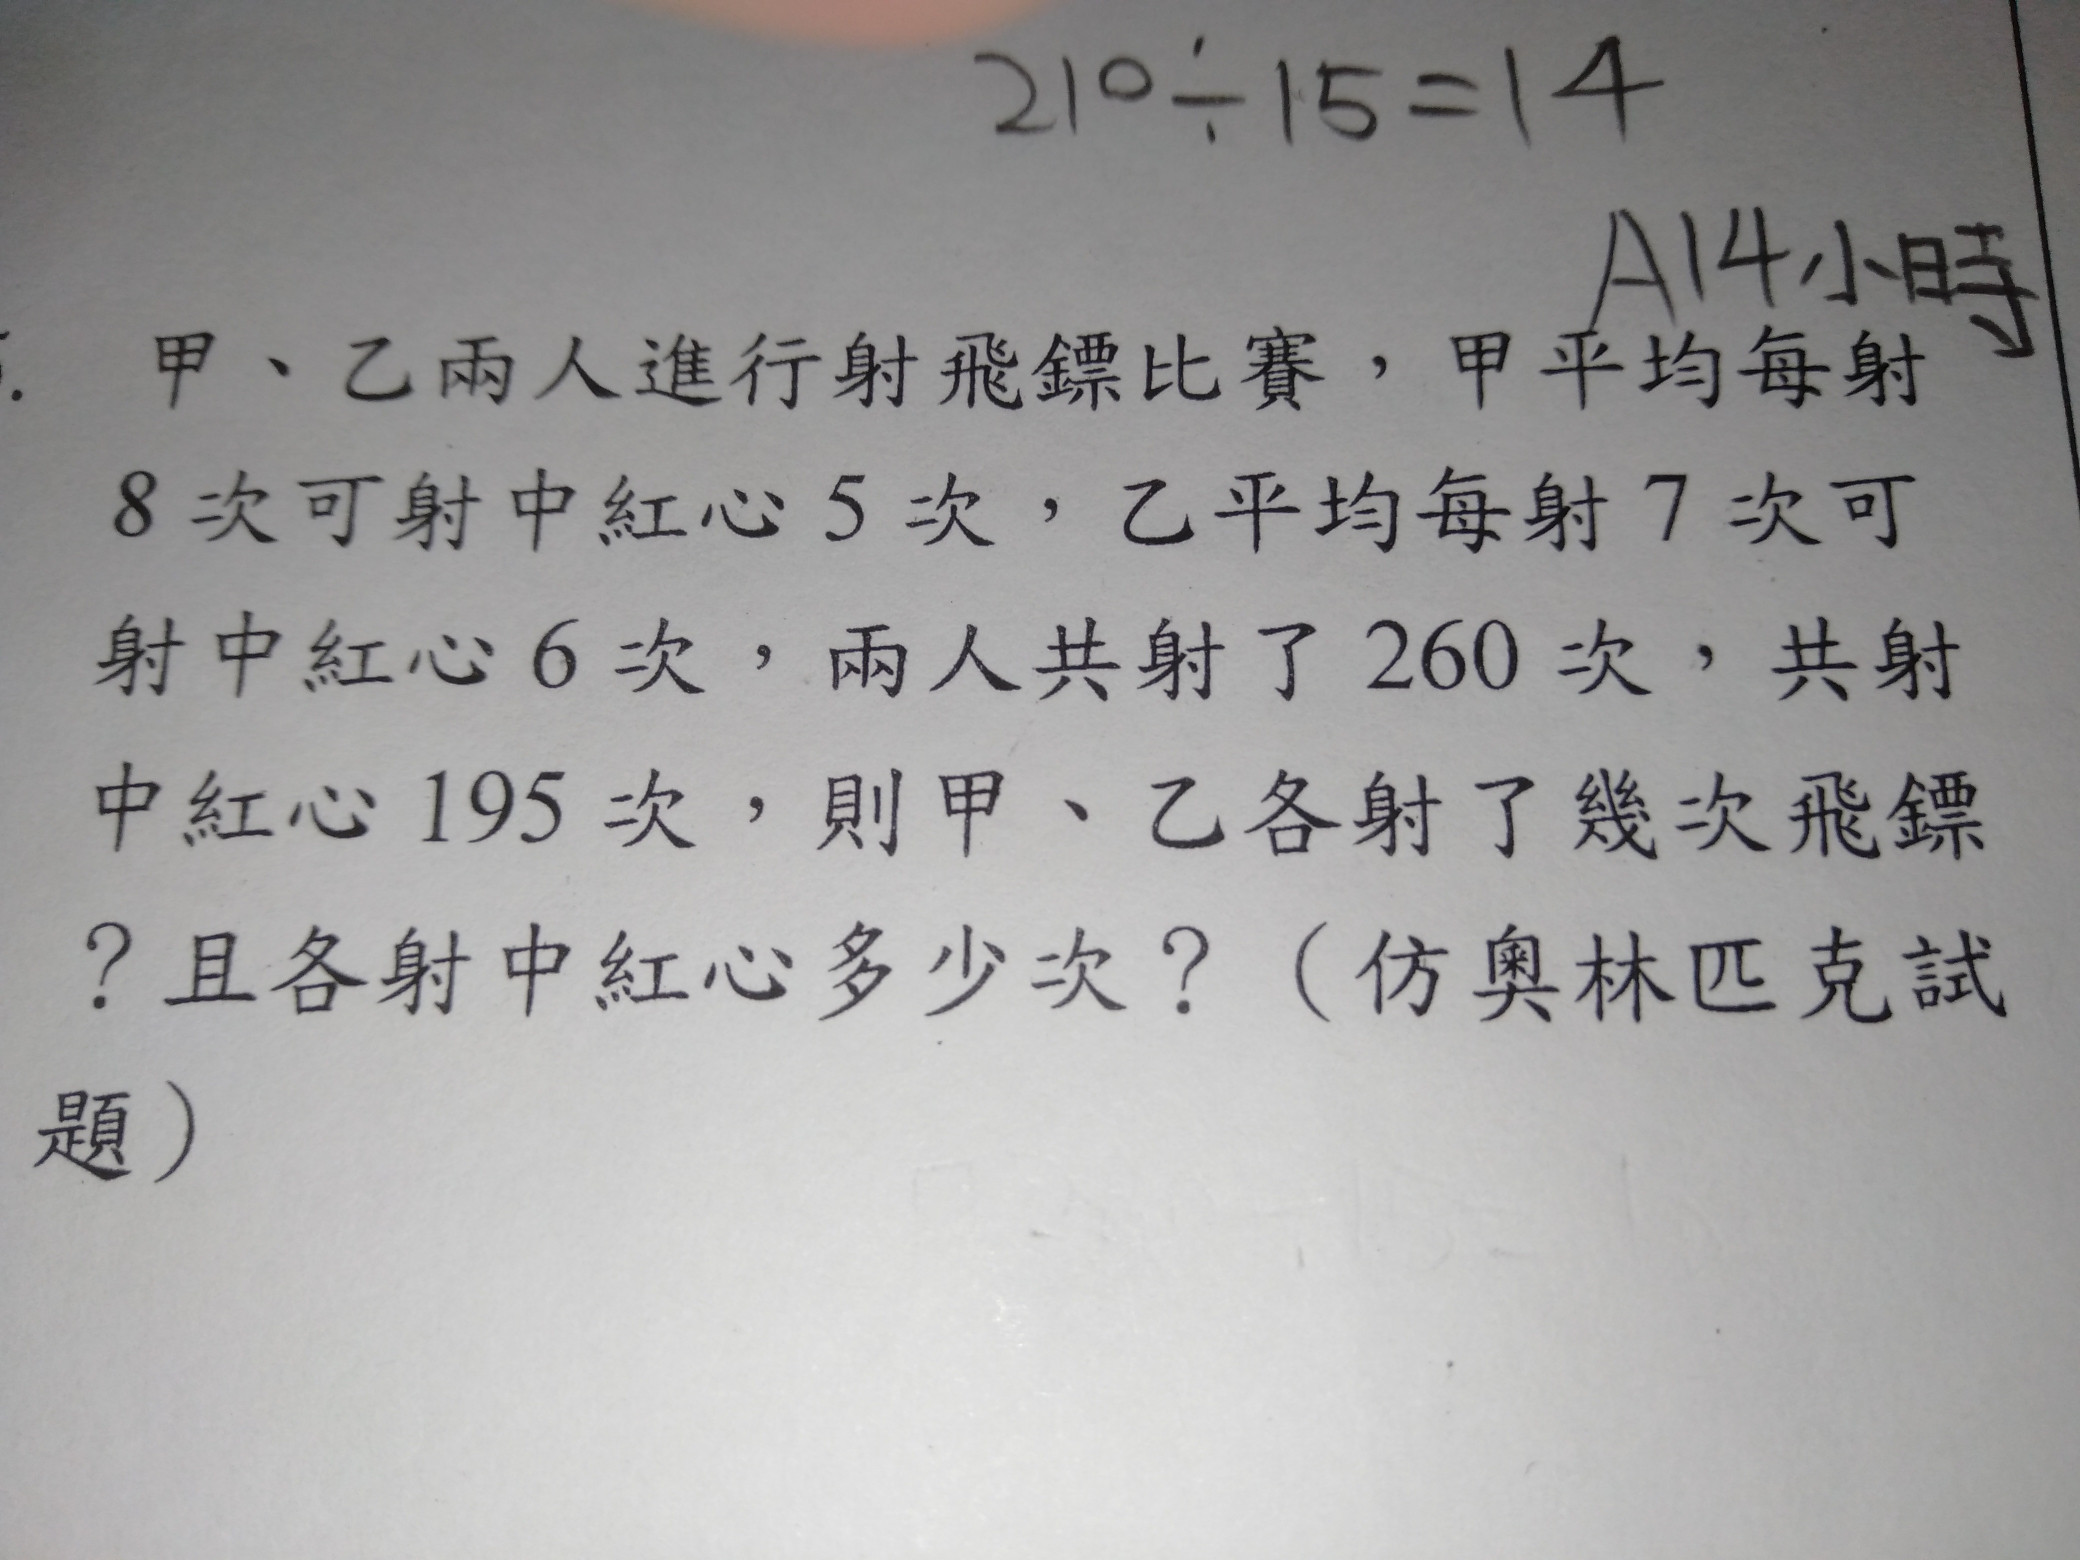 210÷15=14
A14小時
甲、乙兩人進行射飛鏢比賽，甲平均每射
8次可射中紅心5次，乙平均每射7次可
射中紅心6次，兩人共射了260次，共射
中紅心195次，則甲、乙各射了幾次飛鏢
？且各射中紅心多少次？（仿奧林匹克試
題）